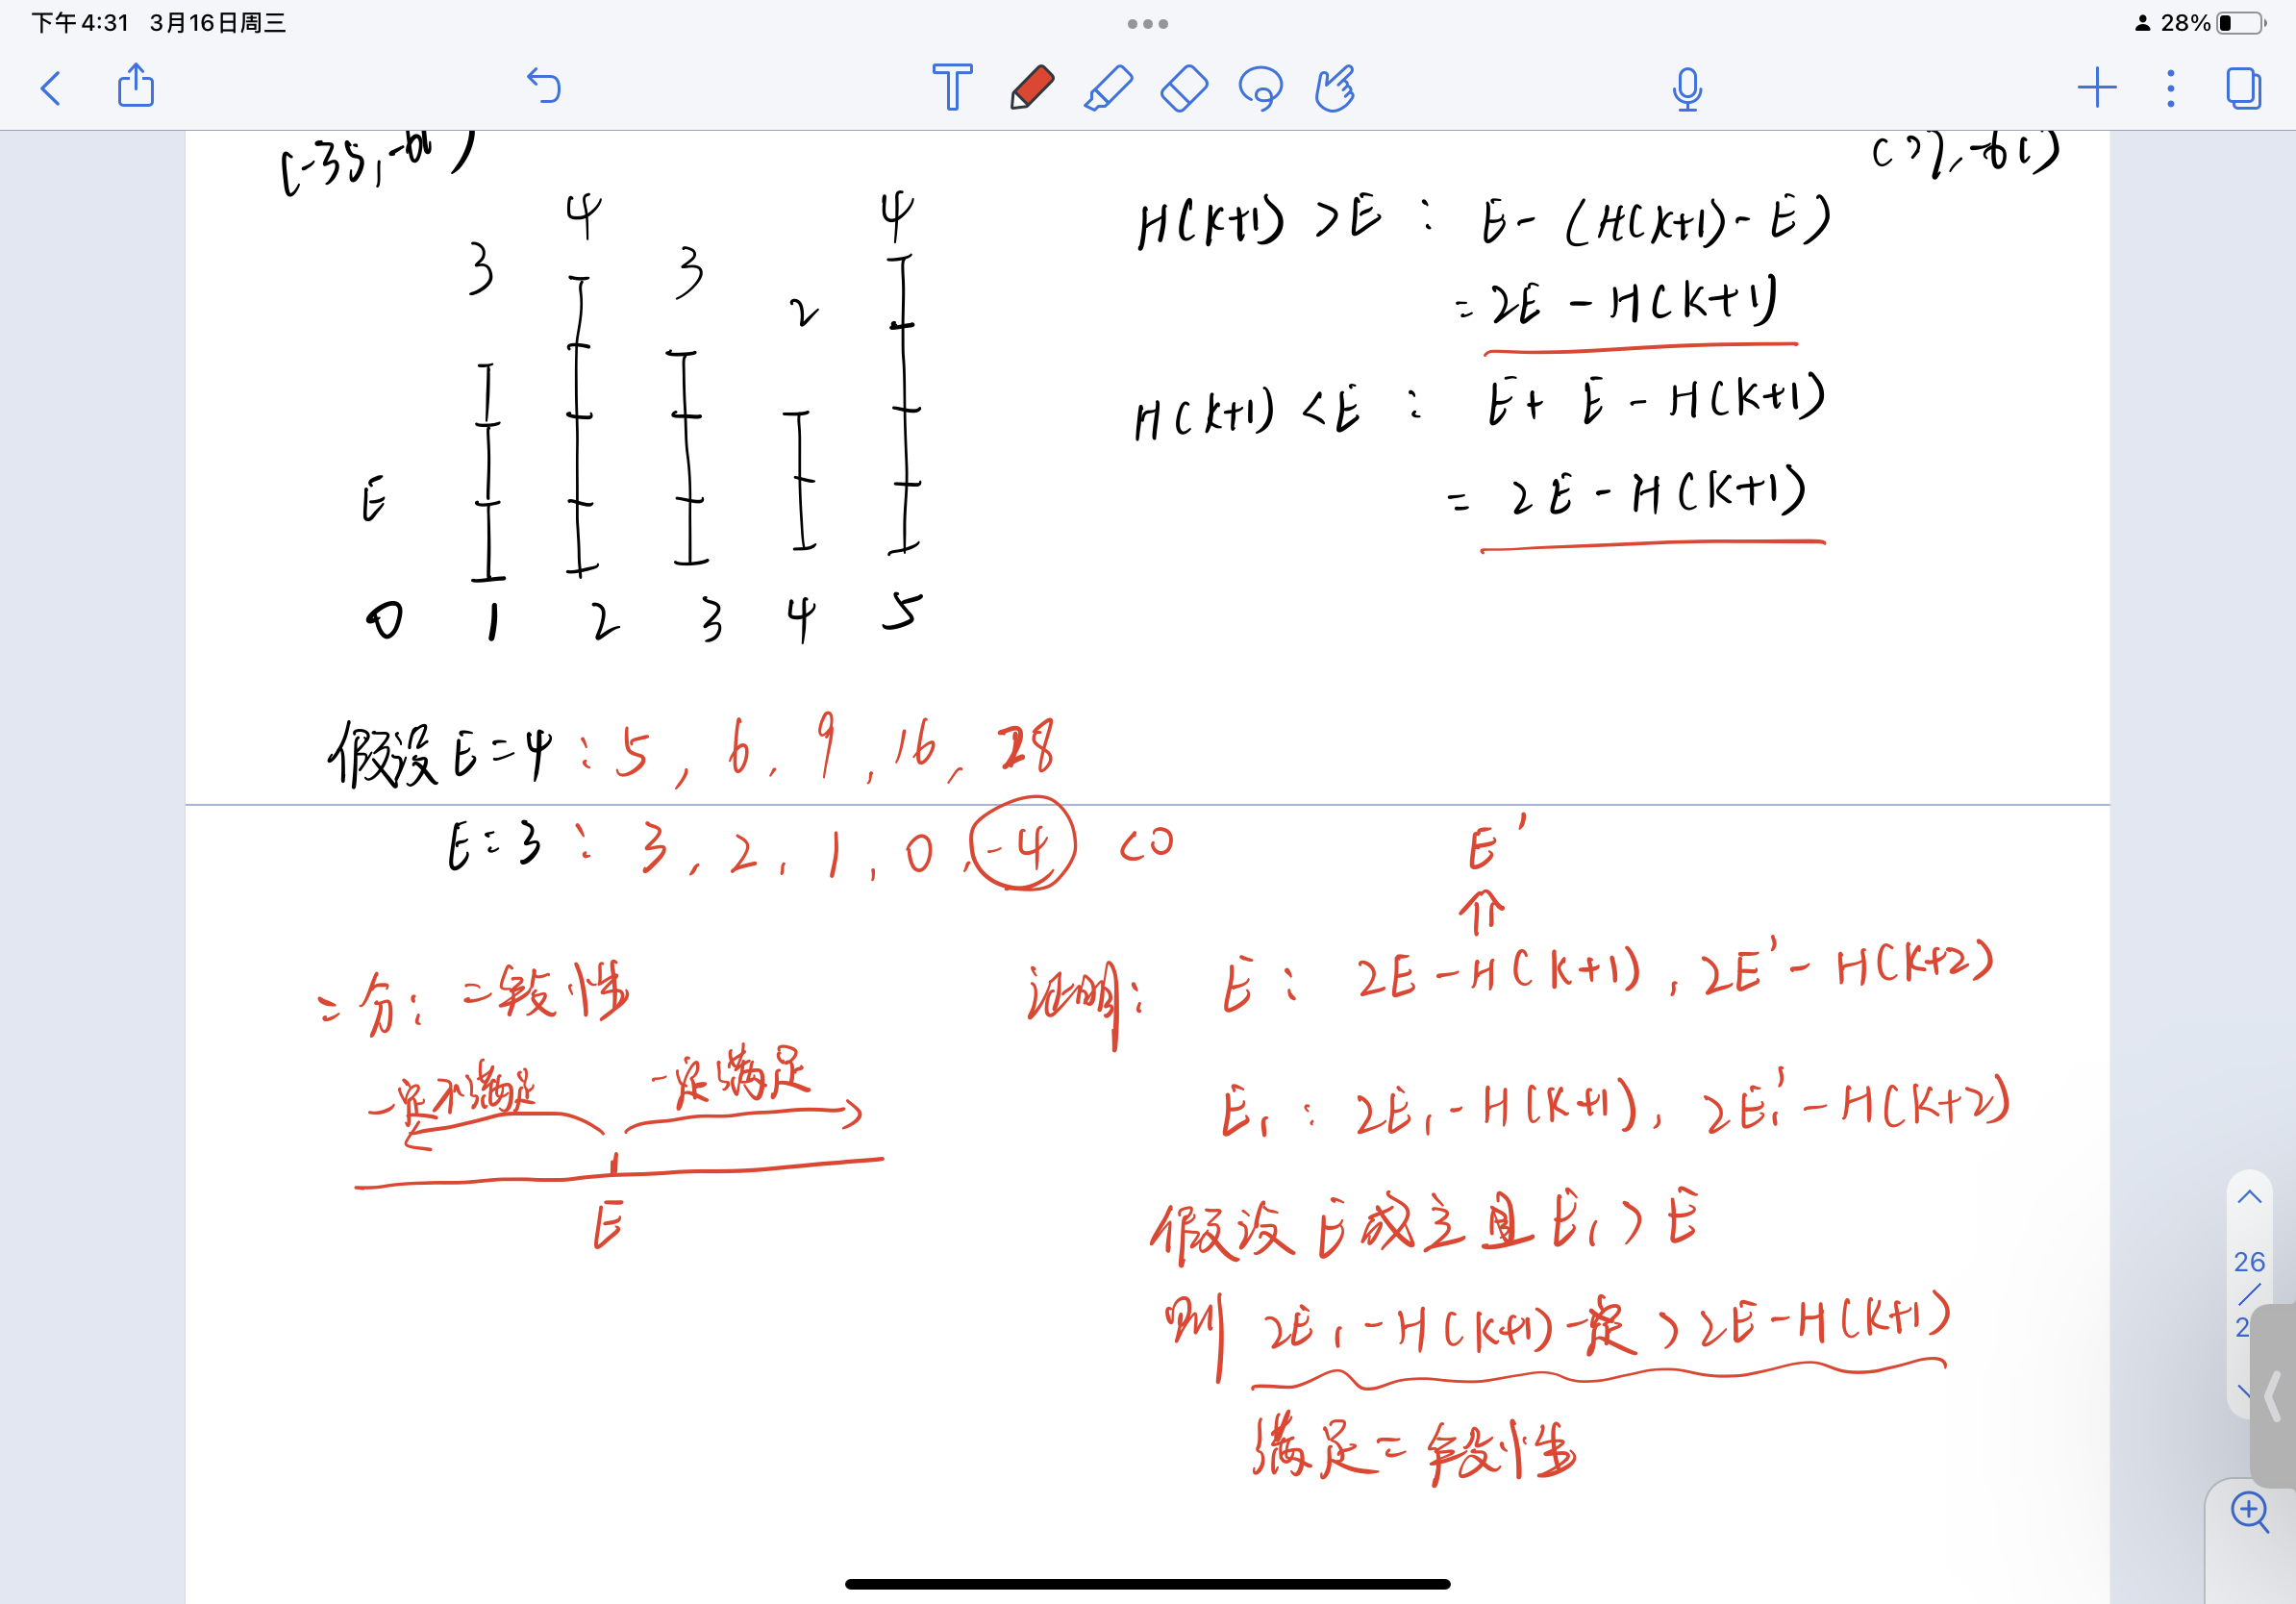 下午4:31 3月16日周三
28%
3 4 3 2 4
E
0 1 2 3 4 5
H(k+1) > E : E - (H(k+1) - E)
= 2E - H(k+1)
H(k+1) < E : E + E - H(k+1)
= 2E - H(k+1)
假设 E=4 : 5, 6, 9, 16, 28
E=3 : 3, 2, 1, 0, -4 <0
二分: 二段性
一定不满足 一定满足
E
E'
⇑
证明: E : 2E - H(k+1), 2E' - H(k+2)
E₁ : 2E₁ - H(k+1), 2E₁' - H(k+2)
假设 E 成立且 E₁ > E
则 2E₁ - H(k+1) 一定 > 2E - H(k+1)
满足二段性
26
/
2